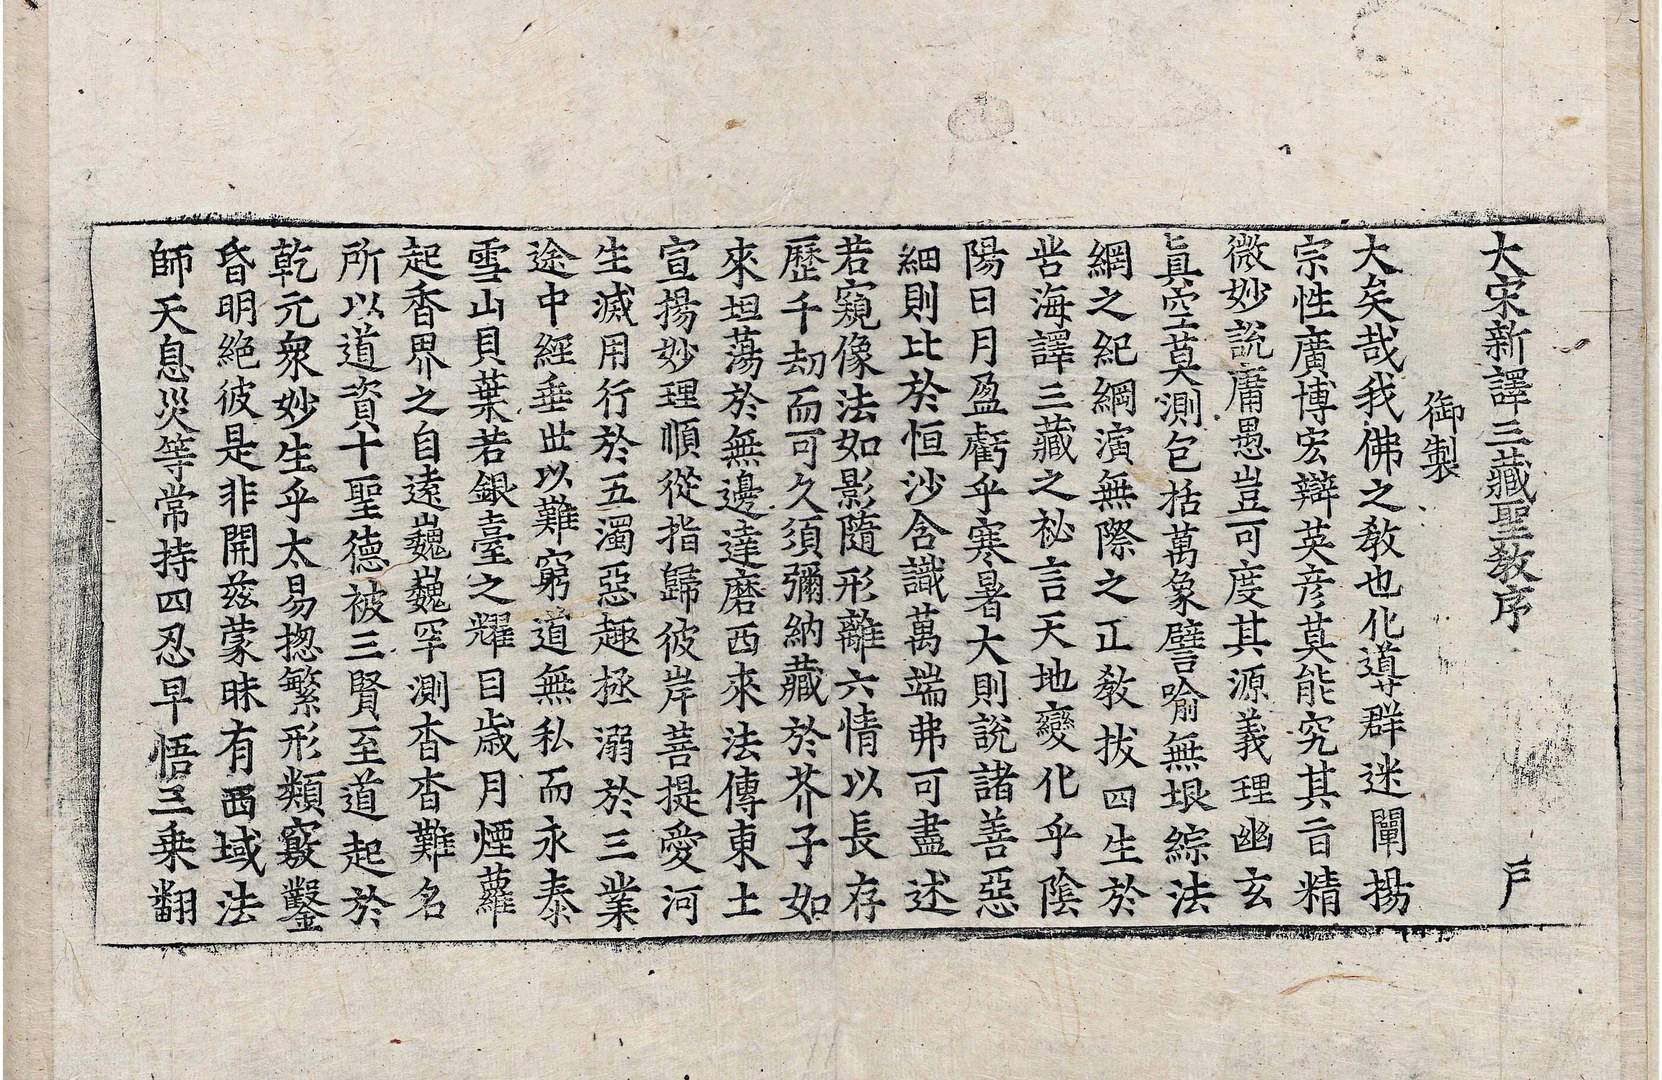 大宋新譯三藏聖教序 戶
御製
大矣哉我佛之教也化導群迷闡揚
宗性廣博宏辯英彦莫能究其旨精
微妙說庸愚豈可度其源義理幽玄
真空莫測包括萬象譬喻無垠綜法
網之紀綱演無際之正教拔四生於
苦海譯三藏之祕言天地變化乎陰
陽日月盈虧乎寒暑大則說諸善惡
細則比於恒沙含識萬端弗可盡述
若窺像法如影隨形離六情以長存
歷千劫而可久須彌納藏於芥子如
來坦蕩於無邊達磨西來法傳東土
宣揚妙理順從指歸彼岸菩提愛河
生滅用行於五濁惡趣拯溺於三業
途中經垂世以難窮道無私而永泰
雪山貝葉若銀臺之耀目歲月煙蘿
起香界之自遠巍巍罕測杳杳難名
所以道資十聖德被三賢至道起於
乾元衆妙生乎太易揔繁形類竅鑿
昏明絕彼是非開茲蒙昧有西域法
師天息災等常持四忍早悟三乘翻